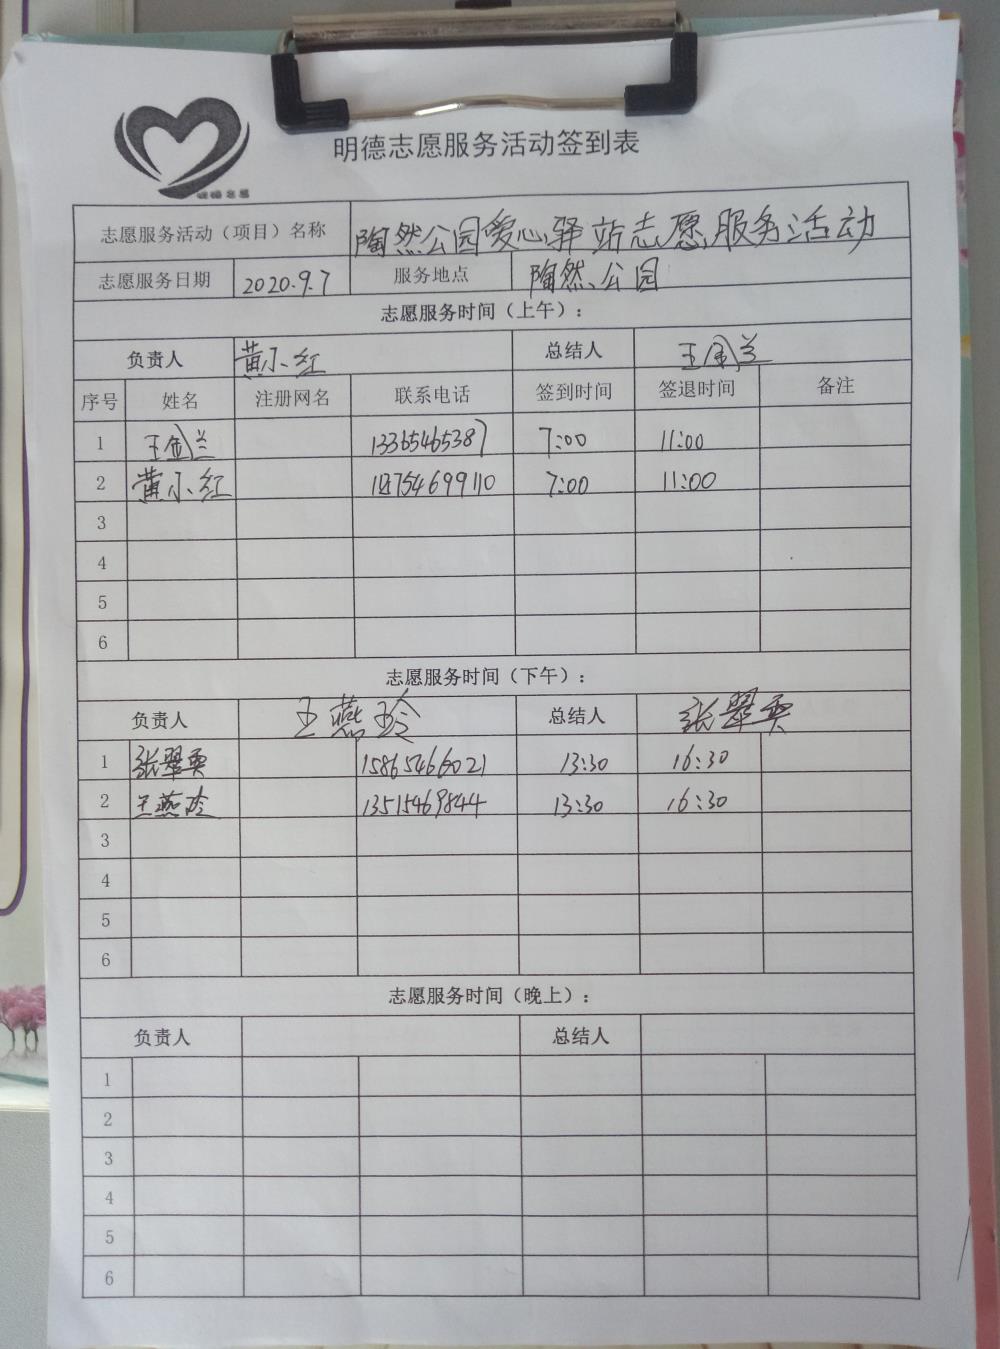 明德志愿服务活动签到表
志愿服务活动（项目）名称 陶然公园爱心驿站志愿服务活动
志愿服务日期 2020.9.7 服务地点 陶然公园
志愿服务时间（上午）：
负责人 黄小红 总结人 王金兰
序号 姓名 注册网名 联系电话 签到时间 签退时间 备注
1 王金兰 13365465387 7:00 11:00
2 黄小红 7:00 11:00
3
4
5
6
志愿服务时间（下午）：
负责人 王燕玲 总结人 张翠
1 张翠 15865466021 13:30 16:30
2 王燕玲 13515469844 13:30 16:30
3
4
5
6
志愿服务时间（晚上）：
负责人 总结人
1
2
3
4
5
6